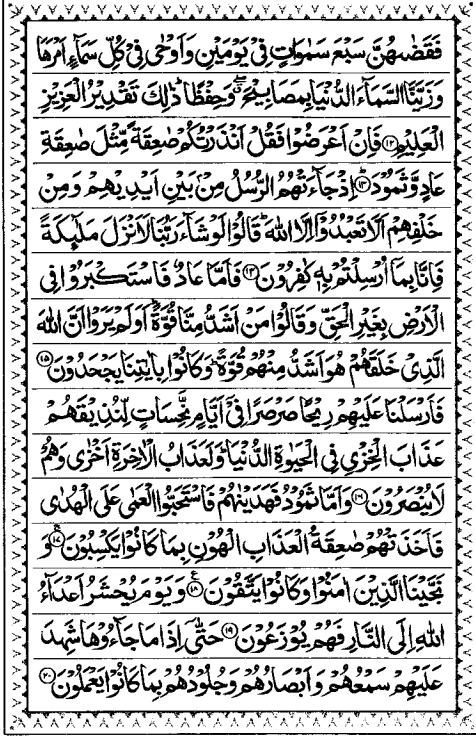 فَقَضٰهُنَّ سَبْعَ سَمٰوَاتٍ فِیْ یَوْمَیْنِ وَاَوْحٰی فِیْ کُلِّ سَمَآءٍ اَمْرَهَا
وَزَیَّنَّا السَّمَآءَ الدُّنْیَا بِمَصَابِیْحَ ۖ وَحِفْظًا ؕ ذٰلِکَ تَقْدِیْرُ الْعَزِیْزِ
الْعَلِیْمِ ﴿۱۲﴾ فَاِنْ اَعْرَضُوْا فَقُلْ اَنْذَرْتُکُمْ صٰعِقَةً مِّثْلَ صٰعِقَةِ
عَادٍ وَّثَمُوْدَ ﴿۱۳﴾ اِذْ جَآءَتْهُمُ الرُّسُلُ مِنْۢ بَیْنِ اَیْدِیْهِمْ وَمِنْ
خَلْفِهِمْ اَلَّا تَعْبُدُوْۤا اِلَّا اللّٰهَ ؕ قَالُوْا لَوْ شَآءَ رَبُّنَا لَاَنْزَلَ مَلٰٓئِکَةً
فَاِنَّا بِمَاۤ اُرْسِلْتُمْ بِهٖ کٰفِرُوْنَ ﴿۱۴﴾ فَاَمَّا عَادٌ فَاسْتَکْبَرُوْا فِی
الْاَرْضِ بِغَیْرِ الْحَقِّ وَقَالُوْا مَنْ اَشَدُّ مِنَّا قُوَّةً ؕ اَوَلَمْ یَرَوْا اَنَّ اللّٰهَ
الَّذِیْ خَلَقَهُمْ هُوَ اَشَدُّ مِنْهُمْ قُوَّةً ؕ وَکَانُوْا بِاٰیٰتِنَا یَجْحَدُوْنَ ﴿۱۵﴾
فَاَرْسَلْنَا عَلَیْهِمْ رِیْحًا صَرْصَرًا فِیْۤ اَیَّامٍ نَّحِسَاتٍ لِّنُذِیْقَهُمْ
عَذَابَ الْخِزْیِ فِی الْحَیٰوةِ الدُّنْیَا ؕ وَلَعَذَابُ الْاٰخِرَةِ اَخْزٰی وَهُمْ
لَا یُنْصَرُوْنَ ﴿۱۶﴾ وَاَمَّا ثَمُوْدُ فَهَدَیْنٰهُمْ فَاسْتَحَبُّوا الْعَمٰی عَلَی الْهُدٰی
فَاَخَذَتْهُمْ صٰعِقَةُ الْعَذَابِ الْهُوْنِ بِمَا کَانُوْا یَکْسِبُوْنَ ﴿۱۷﴾ وَ
نَجَّیْنَا الَّذِیْنَ اٰمَنُوْا وَکَانُوْا یَتَّقُوْنَ ﴿۱۸﴾ ع وَیَوْمَ یُحْشَرُ اَعْدَآءُ
اللّٰهِ اِلَی النَّارِ فَهُمْ یُوْزَعُوْنَ ﴿۱۹﴾ حَتّٰۤی اِذَا مَا جَآءُوْهَا شَهِدَ
عَلَیْهِمْ سَمْعُهُمْ وَاَبْصَارُهُمْ وَجُلُوْدُهُمْ بِمَا کَانُوْا یَعْمَلُوْنَ ﴿۲۰﴾